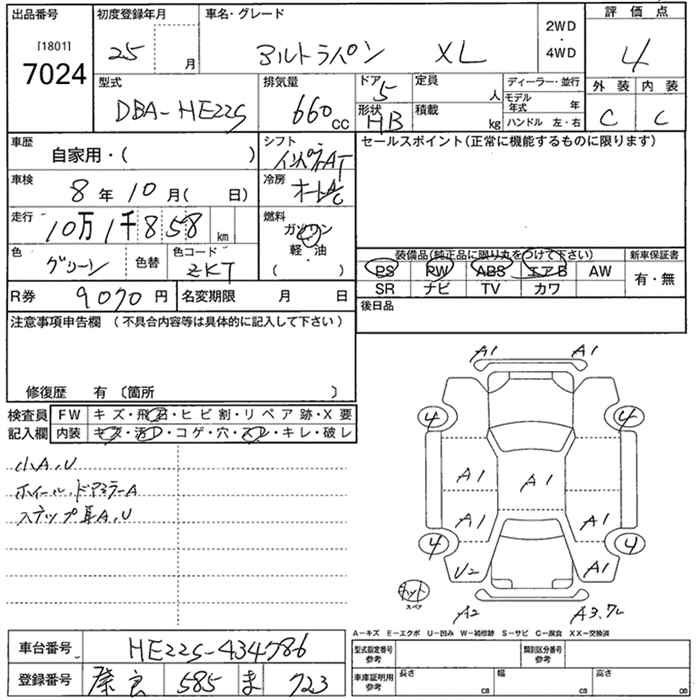 出品番号 初度登録年月 車名・グレード 2WD・4WD 評価点
[1801]
7024 25 月 アルトラパン XL 4
型式 排気量 ドア 定員 人 ディーラー・並行 外装 内装
DBA-HE22S 660 CC 5 モデル年式 年
形状 HB 積載 kg ハンドル 左・右 C C
車歴 自家用・( ) シフト インパネAT セールスポイント(正常に機能するものに限ります)
車検 8年10月( 日) 冷房 オートA/C
走行 10万1千858 km 燃料 ガソリン 軽・油 ( )
色 グリーン 色替 色コード ZKT
装備品(純正品に限り丸をつけて下さい) 新車保証書
PS PW ABS エアB AW 有・無
SR ナビ TV カワ
R券 9070円 名変期限 月 日 後日品
注意事項申告欄 (不具合内容等は具体的に記入して下さい)
修復歴 有 〔箇所 〕
検査員記入欄 FW キズ・飛石・ヒビ割・リペア跡・X要
内装 キズ・汚レ・コゲ・穴・スレ・キレ・破レ
小A,U
ホイール・ドアミラーA
ステップ耳A,U
A1 A1
4 4
A1 A1
A1 A1
4 4
U2 A1
スペア
A2 A3.
A-キズ E-エクボ U-凹み W-補修跡 S-サビ C-腐食 XX-交換済
車台番号 HE22S-434786
型式指定番号 参考 類別区分番号 参考
登録番号 奈良 585 ま 723
車庫証明用 参考 長さ cm 幅 cm 高さ cm